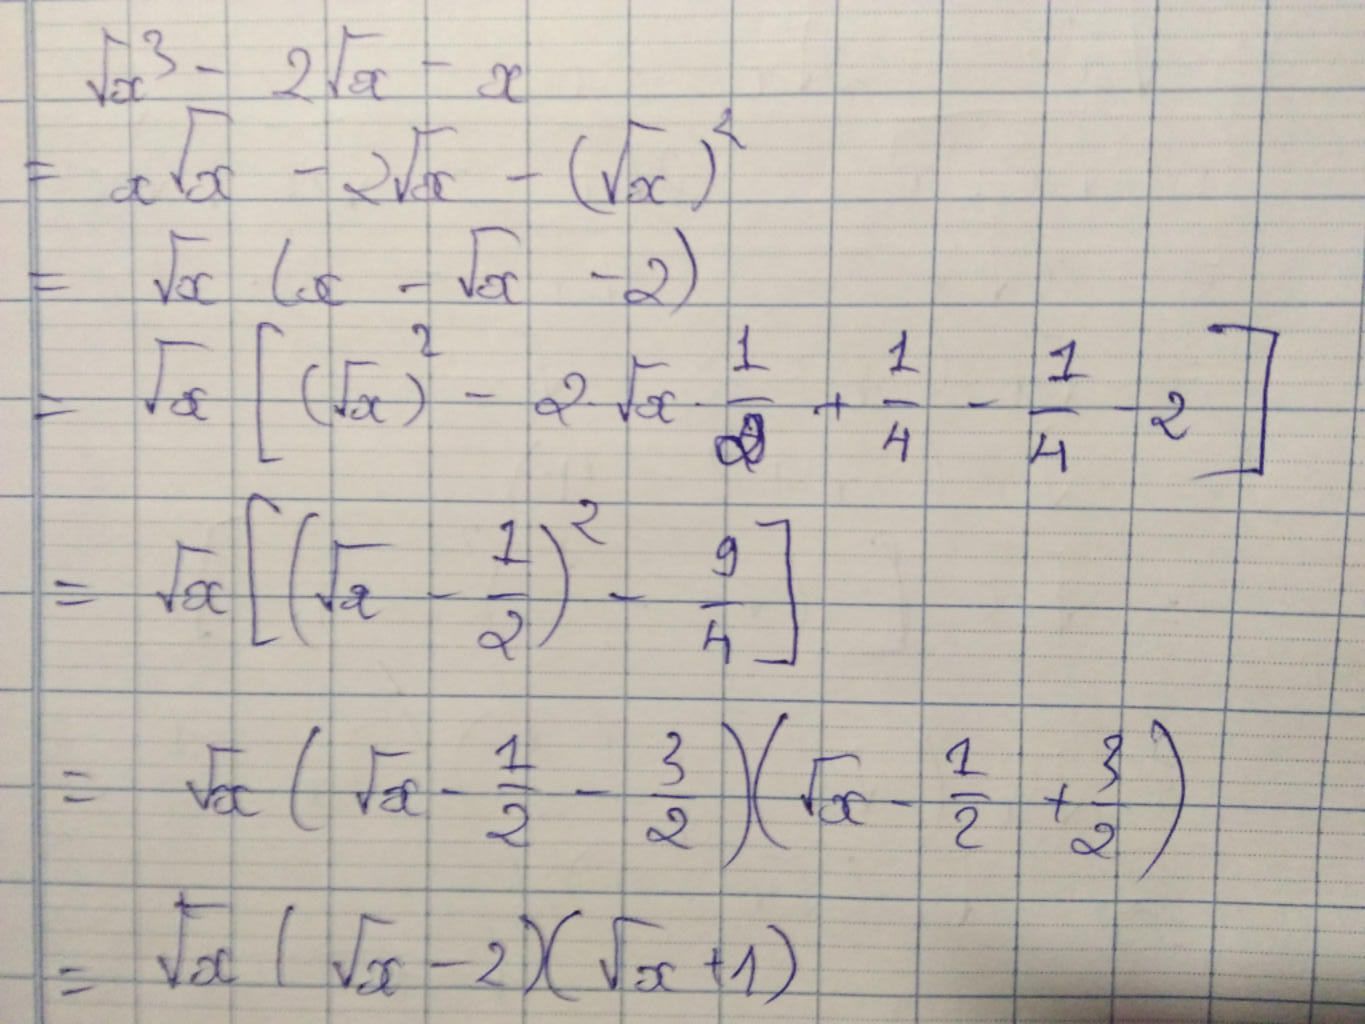 √x³ - 2√x - x
= x√x - 2√x - (√x)²
= √x (x - √x - 2)
= √x [(√x)² - 2·√x·1/2 + 1/4 - 1/4 - 2]
= √x [(√x - 1/2)² - 9/4]
= √x (√x - 1/2 - 3/2)(√x - 1/2 + 3/2)
= √x (√x - 2)(√x + 1)